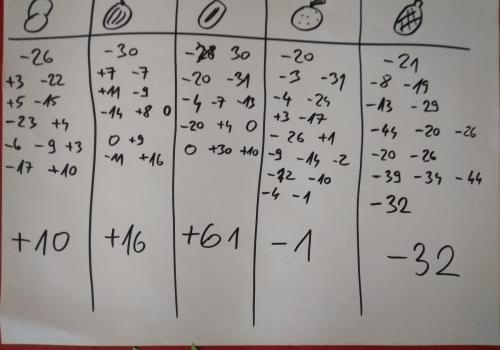 -26
+3 -22
+5 -15
-23 +4
-6 -9 +3
-17 +10
+10
-30
+7 -7
+11 -9
-14 +8 0
0 +9
-11 +16
+16
30
-20 -31
-4 -7 -13
-20 +4 0
0 +30 +10
+61
-20
-3 -31
-4 -24
+3 -17
-26 +1
-9 -14 -2
-12 -10
-4 -1
-1
-21
-8 -19
-13 -29
-44 -20 -26
-20 -26
-39 -34 -44
-32
-32